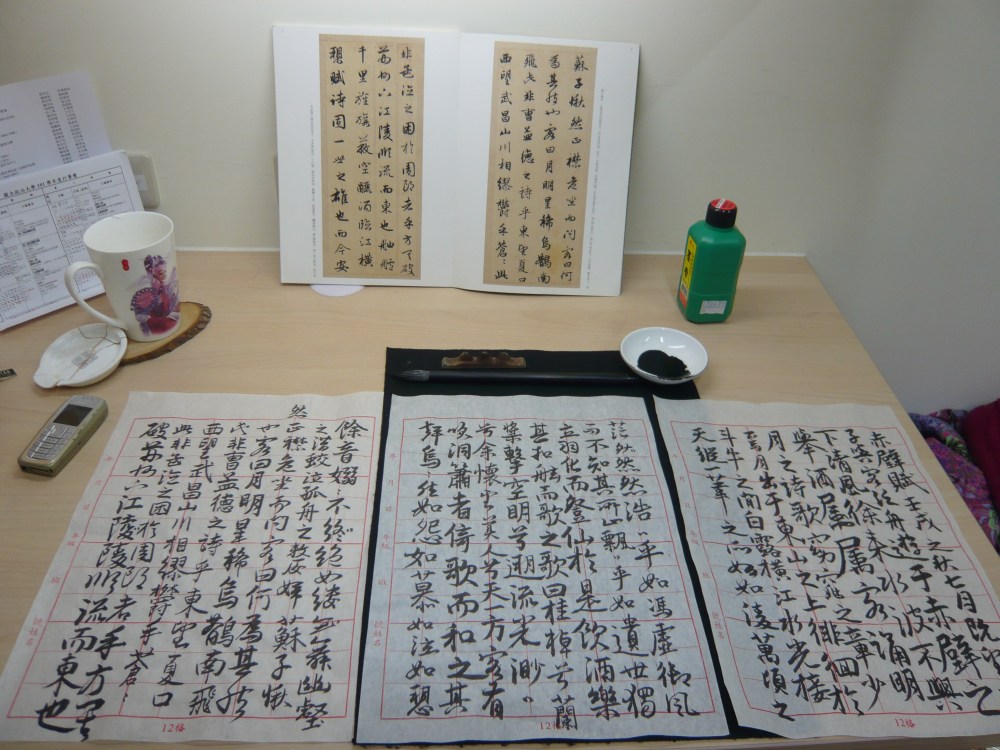 蘇子愀然正襟危坐而問客曰何
為其然也客曰月明星稀烏鵲南
飛此非曹孟德之詩乎東望夏口
西望武昌山川相繆鬱乎蒼〻此
非孟德之困於周郎者乎方其破
荊州下江陵順流而東也舳艫
千里旌旗蔽空釃酒臨江橫
槊賦詩固一世之雄也而今安
赤壁賦壬戌之秋七月既望
子與客泛舟遊于赤壁之
下清風徐來水波不興
舉酒屬屬客誦明
月之詩歌窈窕之章少
焉月出于東山之上徘徊於
斗牛之間白露橫江水光接
天縱一葦之所如凌萬頃之
茫然然然浩〻乎如馮虛御風
而不知其所止飄乎如遺世獨
立羽化而登仙於是飲酒樂
甚扣舷而歌之歌曰桂棹兮蘭
槳擊空明兮遡流光渺〻
兮余懷望美人兮天一方客有
吹洞簫者倚歌而和之其
聲烏〻然如怨如慕如泣如愬
餘音嫋〻不絕如縷舞幽壑
之潛蛟泣孤舟之嫠婦蘇子愀
然正襟危坐而問客曰何為其然
也客曰月明星稀烏鵲南飛
此非曹孟德之詩乎東望夏口
西望武昌山川相繆鬱乎蒼〻
此非孟德之困於周郎者乎方其
破荊州下江陵陵順流而東也
12格
12格
12格